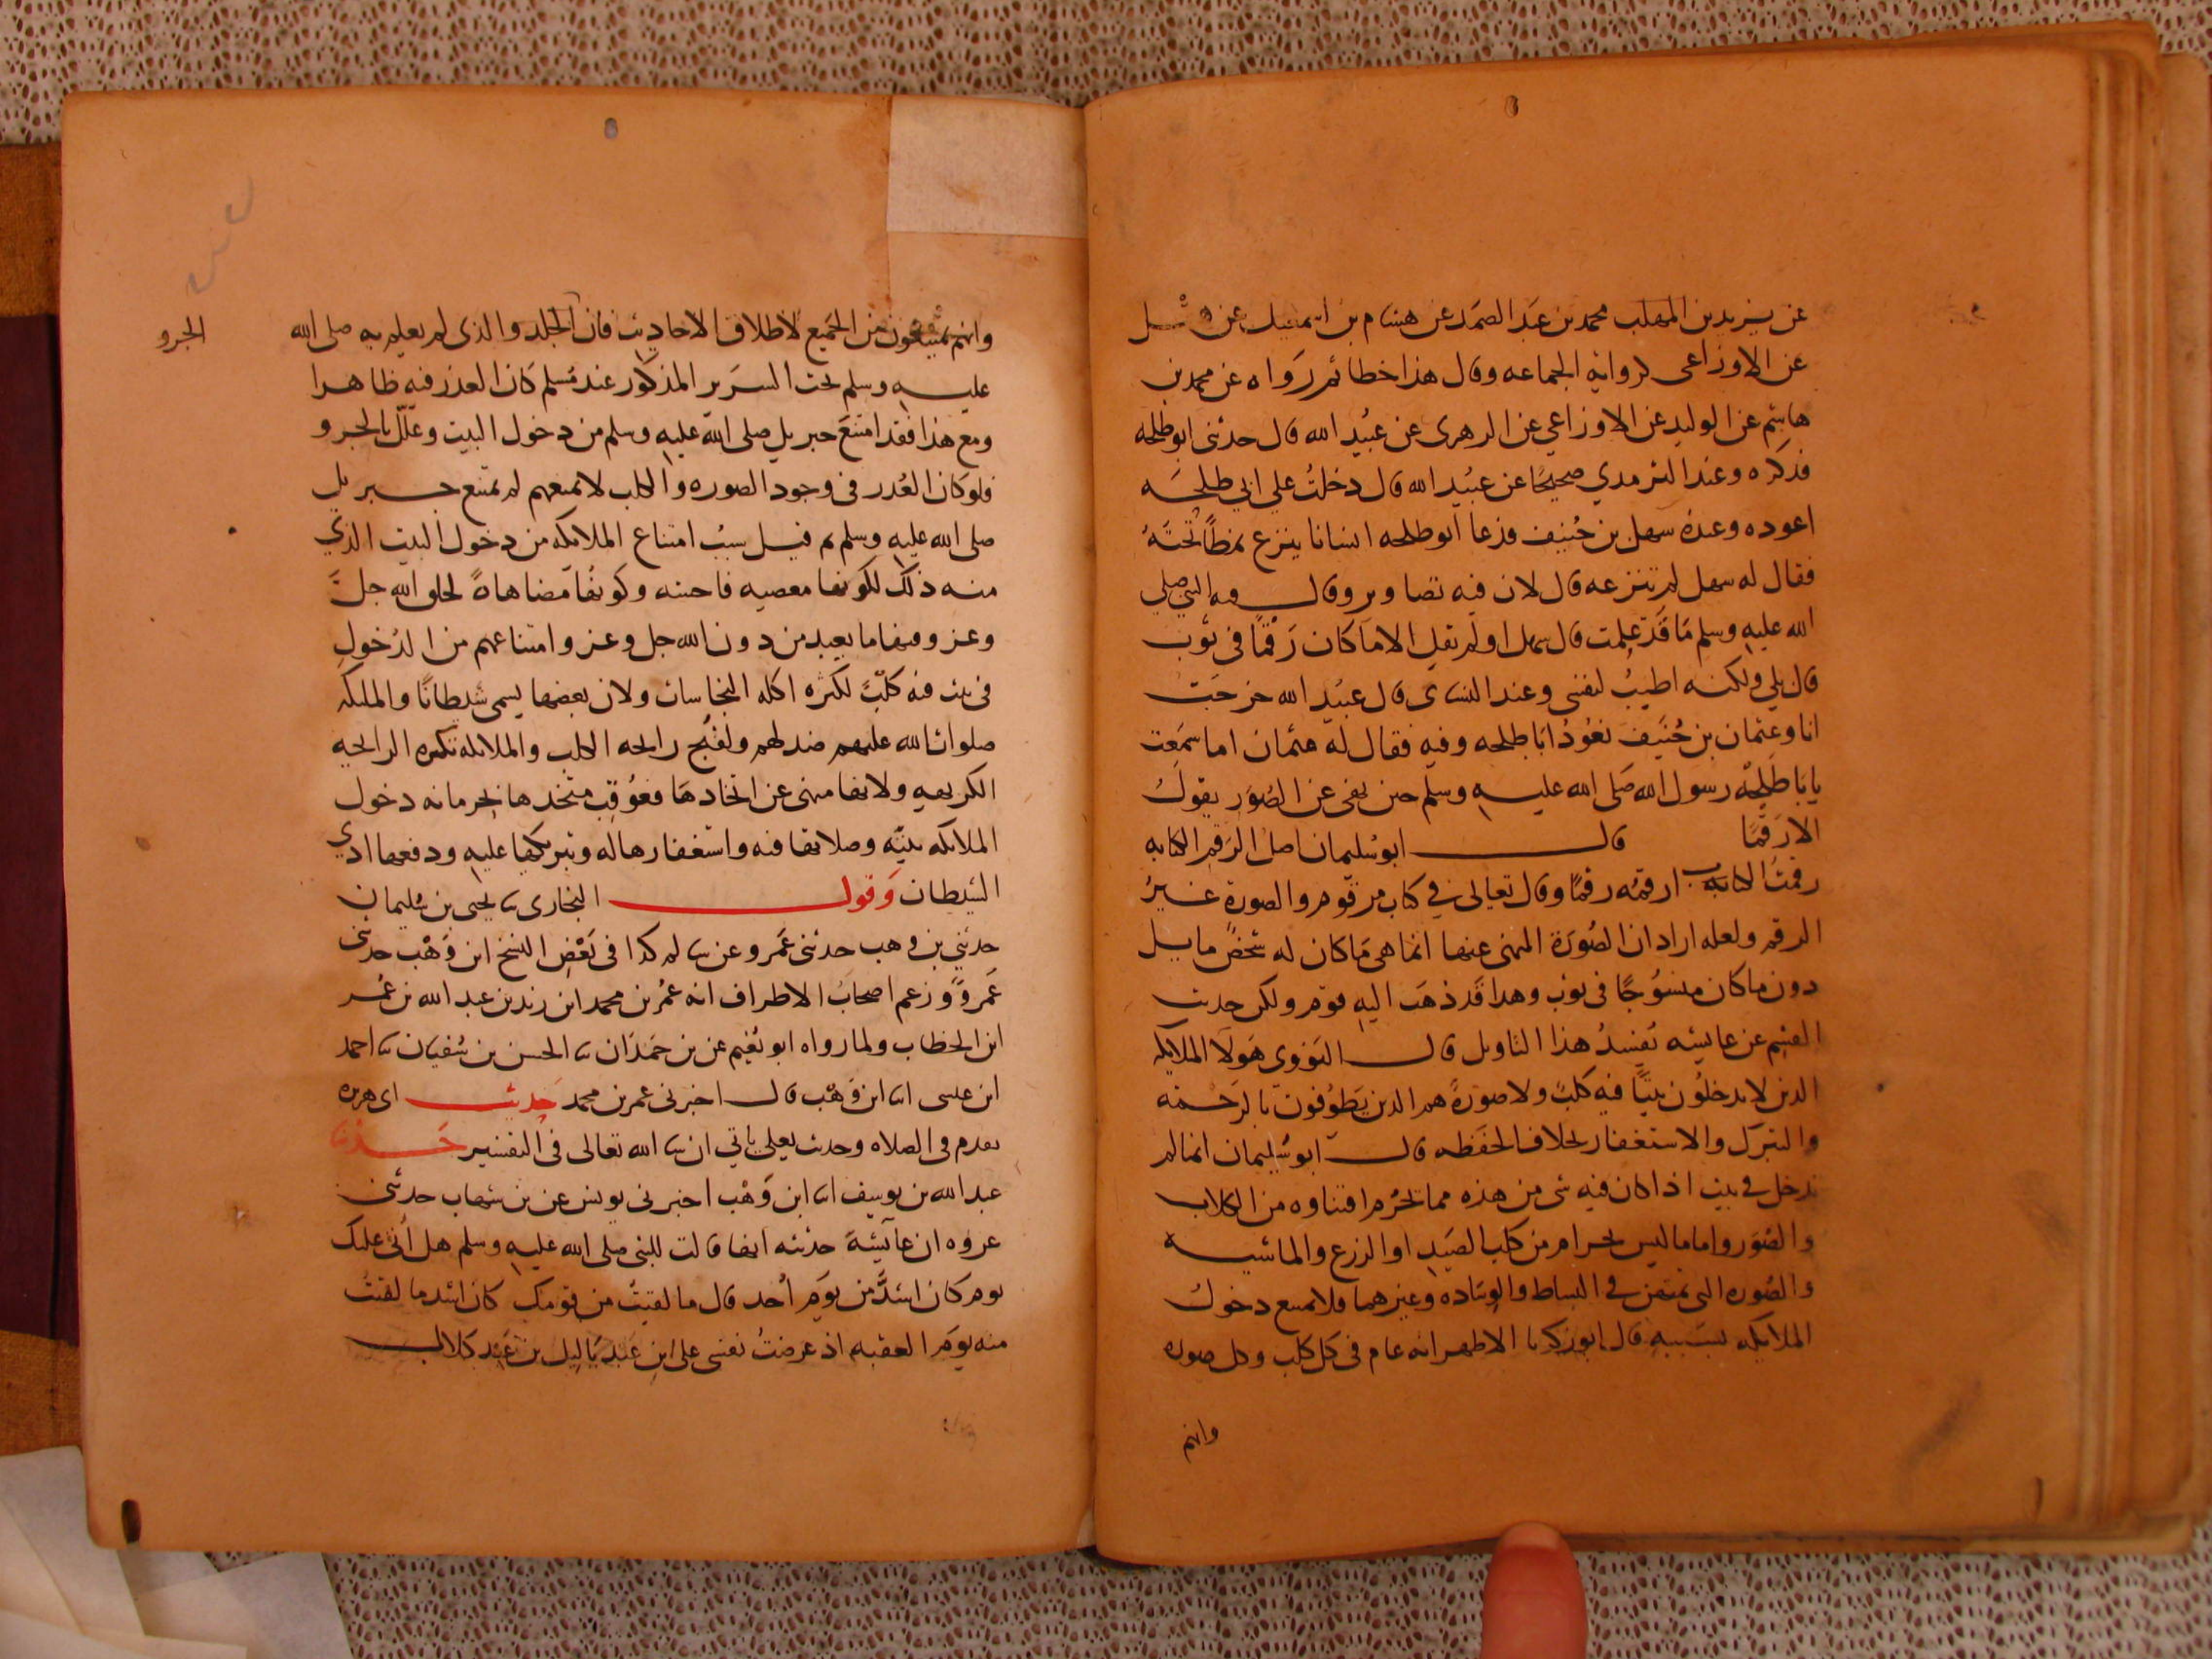 عن يزيد بن المهلب محمد بن عبد الصمد عن هشام بن اسمعيل عن
عن الاوزاعى كرواية الجماعه وقال هذا خطا ثم رواه عن محمد بن
هاشم عن الوليد عن الاوزاعي عن الزهرى عن عبيد الله قال حدثنى ابو طلحه
فذكره وعند الترمدي صحيحًا عن عبيد الله قال دخلت علي ابي طلحه
اعوده وعنده سهل بن حنيف فدعا ابو طلحه انسانا ينزع نمطًا تحته
فقال له سهل لم تنزعه قال لان فيه تصاوير وقال فيه النبي صلي
الله عليه وسلم مَا قد علمت قال سهل اولم يقل الا ما كان رَقمًا فى ثوب
قال بلي ولكنه اطيب لنفسى وعند النساى قال عبيد الله خرجت
انا وعثمان بن حنيف نعود ابا طلحه وفيه فقال له عثمان اما سمعت
يابا طلحه رسول الله صلى الله عليه وسلم حين نهى عن الصور يقول
الا رقمًا قال ابو سليمان اصل الرقم الكتابه
رقمت الكتاب ارقمه رقمًا وقال تعالى فى كتاب مرقوم والصورة غير
الرقم ولعله اراد ان الصورة المنهى عنها انما هى ما كان له شخص ماثل
دون ما كان منسوجًا فى ثوب وهذا قد ذهب اليه قوم ولكن حديث
القسم عن عايشه يفسد هذا التاويل قال النووى هولا الملايكه
الذين لا يدخلون بيتًا فيه كلب ولا صورة هم الذين يطوفون بالرحمه
والتبرك والاستغفار بخلاف الحفظه قال ابو سليمان انما لم
تدخل فى بيت اذا كان فيه شى من هذه مما يحرم اقتناوه من الكلاب
والصور واما ما ليس بحرام من كلب الصيد او الزرع والماشيه
والصوره التى تمتهن فى البساط والوساده وغيرهما فلا يمنع دخول
الملايكه بسببه قال ابو زكريا الاظهر انه عام فى كل كلب وكل صوره
وانهم
وانهم يمتنعون من الجميع لاطلاق الاحاديث فان الجلد والذى لم يعلم به صلى الله
الجرو
عليه وسلم تحت السرير المذكور عند مسلم كان العذر فيه ظاهرا
ومع هذا فقد امتنع جبريل صلى الله عليه وسلم من دخول البيت وعلل بالجرو
فلو كان العذر فى وجود الصوره والكلب لا يمنعهم لم يمتنع جبريل
صلى الله عليه وسلم ثم قيل سبب امتناع الملايكه من دخول البيت الذي
منه ذلك لكونها معصيه فاحشه وكونها مضاهاة لخلق الله جل
وعز وفيها ما يعبد من دون الله جل وعز وامتناعهم من الدخول
فى بيت فيه كلب لكثره اكله النجاسات ولان بعضها يسمى شيطانًا والمليكه
صلوات الله عليهم ضد لهم ولقبح رايحه الكلب والملايكه تكره الرايحه
الكريهه ولانها منهى عن اتخادها فعوقب متخدها بحرمانه دخول
الملايكه بيته وصلاتها فيه واستغفارها له وتبريكها عليه ودفعها ادي
الشيطان وقول البخارى ثنا يحيى بن سليمان
حدثني بن وهب حدثنى عمرو عن سالم كدا فى بعض النسخ ابن وهب حدثنى
عمرو وزعم اصحاب الاطراف انه عمر بن محمد ابن زيد بن عبد الله بن عمر
ابن الخطاب ولما رواه ابو نعيم عن بن حمدان ثنا الحسن بن سفيان ثنا احمد
ابن عيسى انا ابن وهب قال اخبرنى عمر بن محمد حديث ابى هريره
تقدم فى الصلاه وحديث يعلي ياتي ان شا الله تعالى فى التفسير حدثنا
عبد الله بن يوسف انا ابن وهب اخبرنى يونس عن بن شهاب حدثنى
عروه ان عايشة حدثته انها قالت للنبى صلى الله عليه وسلم هل اتى عليك
يوم كان اشد من يوم احد قال ما لقيت من قومك كان اشد ما لقيت
منه يوم العقبه اذ عرضت نفسى على ابن عبد ياليل بن عبد كلال